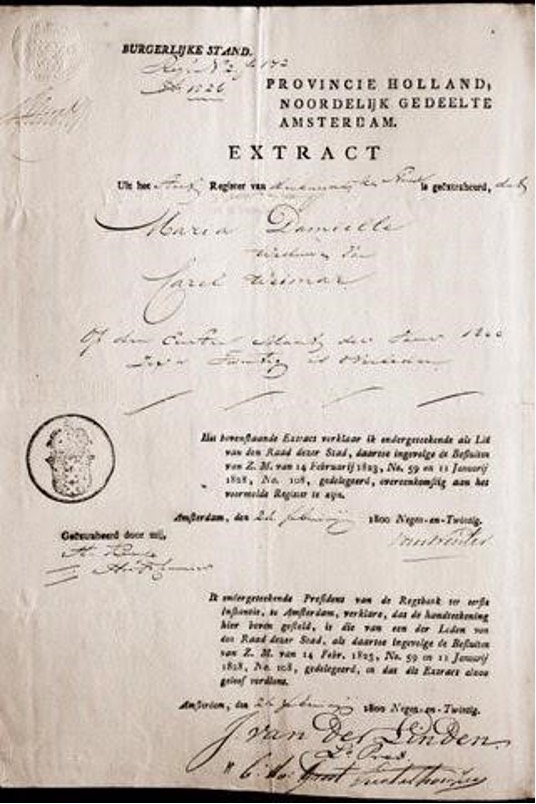 BURGERLIJKE STAND.
1526
PROVINCIE HOLLAND,
NOORDELIJK GEDEELTE
AMSTERDAM.
EXTRACT
Uit het Register van is geëxtraheerd, dat
Maria Damvelle
Weduwe van
Carel Weimar
Op den der
is Overleden
Het bovenstaande Extract verklaar ik ondergeteekende als Lid
van den Raad dezer Stad, daartoe ingevolge de Besluiten
van Z. M. van 14 Februarij 1823, No. 59 en 11 Januarij
1828, No. 108, gedelegeerd, overeenkomstig aan het
voormelde Register te zijn.
Amsterdam, den 24 februarij 1800 Negen-en-Twintig.
Geëxtraheerd door mij,
Ik ondergeteekende President van de Regtbank ter eerste
Instantie, te Amsterdam, verklare, dat de handteekening
hier boven gesteld, is die van een der Leden van
den Raad dezer Stad, als daartoe ingevolge de Besluiten
van Z. M. van 14 Febr. 1823, No. 59 en 11 Januarij
1828, No. 108, gedelegeerd, en dat dis Extract alzoo
geloof verdient.
Amsterdam, den februarij 1800 Negen-en-Twintig.
J van Der Linden.